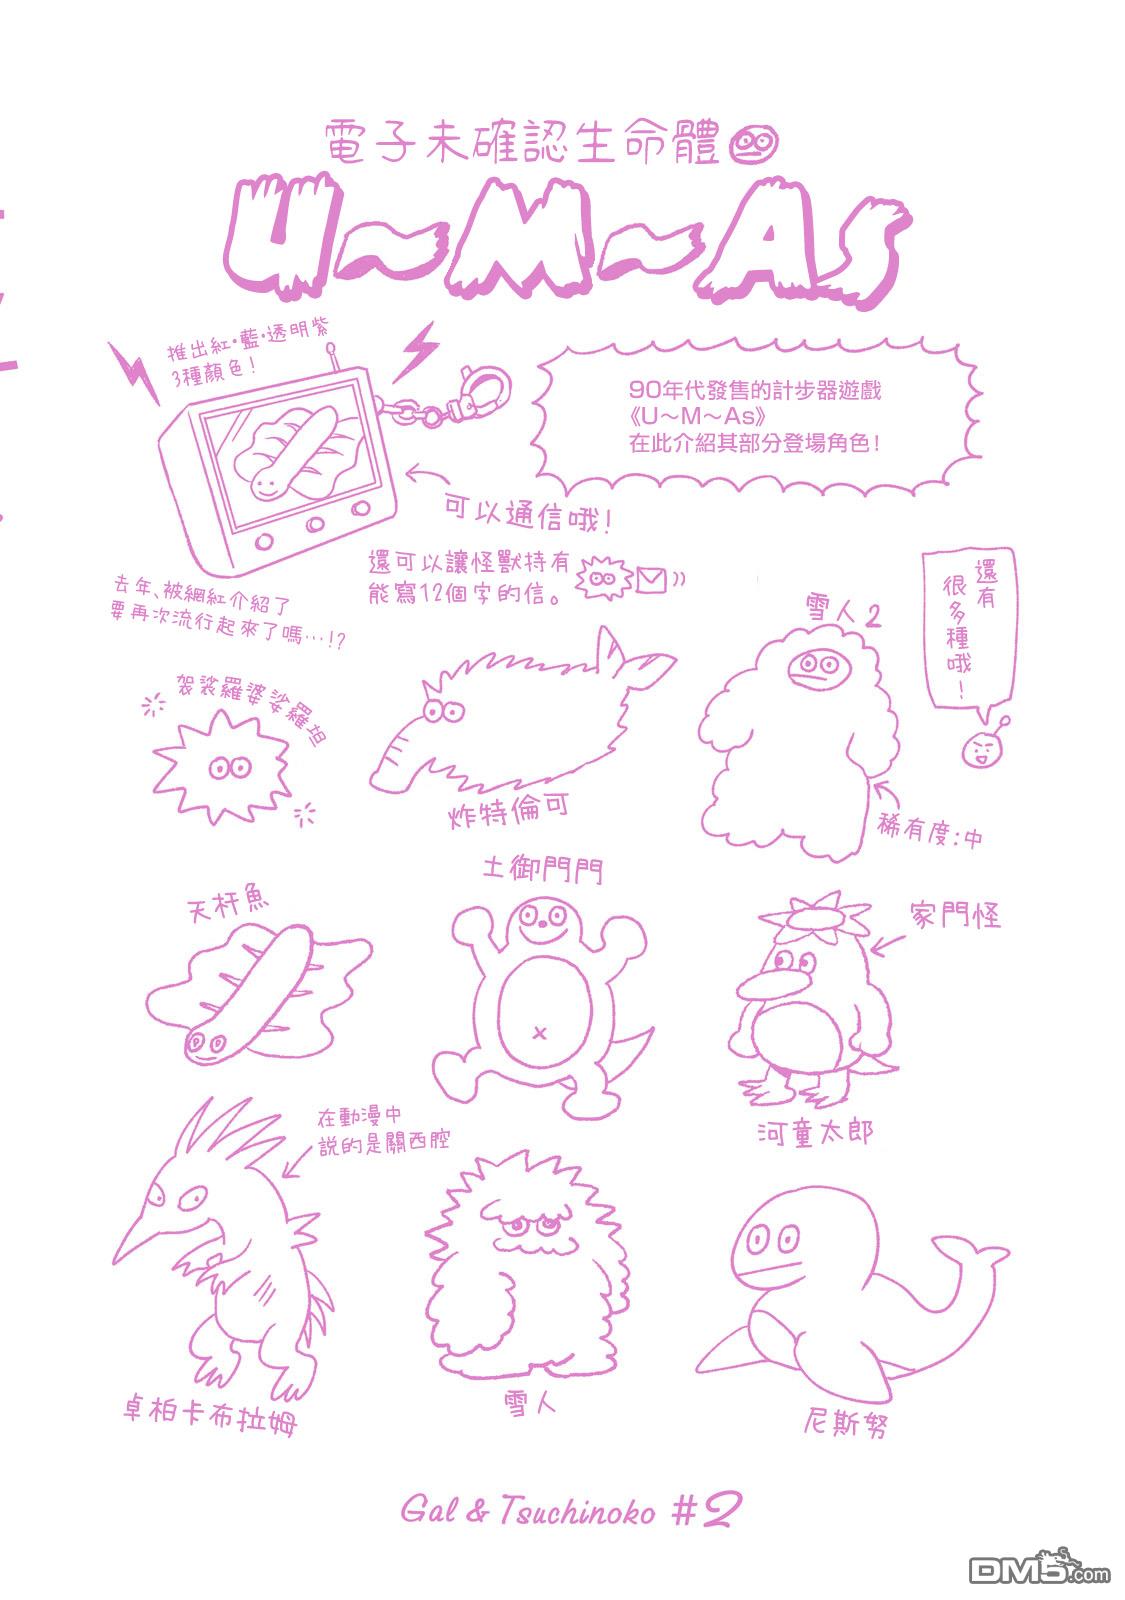 電子未確認生命體
U～M～As
推出紅·藍·透明紫
3種顏色！
90年代發售的計步器遊戲
《U～M～As》
在此介紹其部分登場角色！
可以通信哦！
還可以讓怪獸持有
能寫12個字的信。
去年、被網紅介紹了
要再次流行起來了嗎…!?
還有
很多種哦！
雪人2
稀有度：中
袈裟羅婆娑羅坦
炸特倫可
天杆魚
土御門門
家門怪
河童太郎
在動漫中
說的是關西腔
卓柏卡布拉姆
雪人
尼斯努
Gal & Tsuchinoko #2
DM5.com